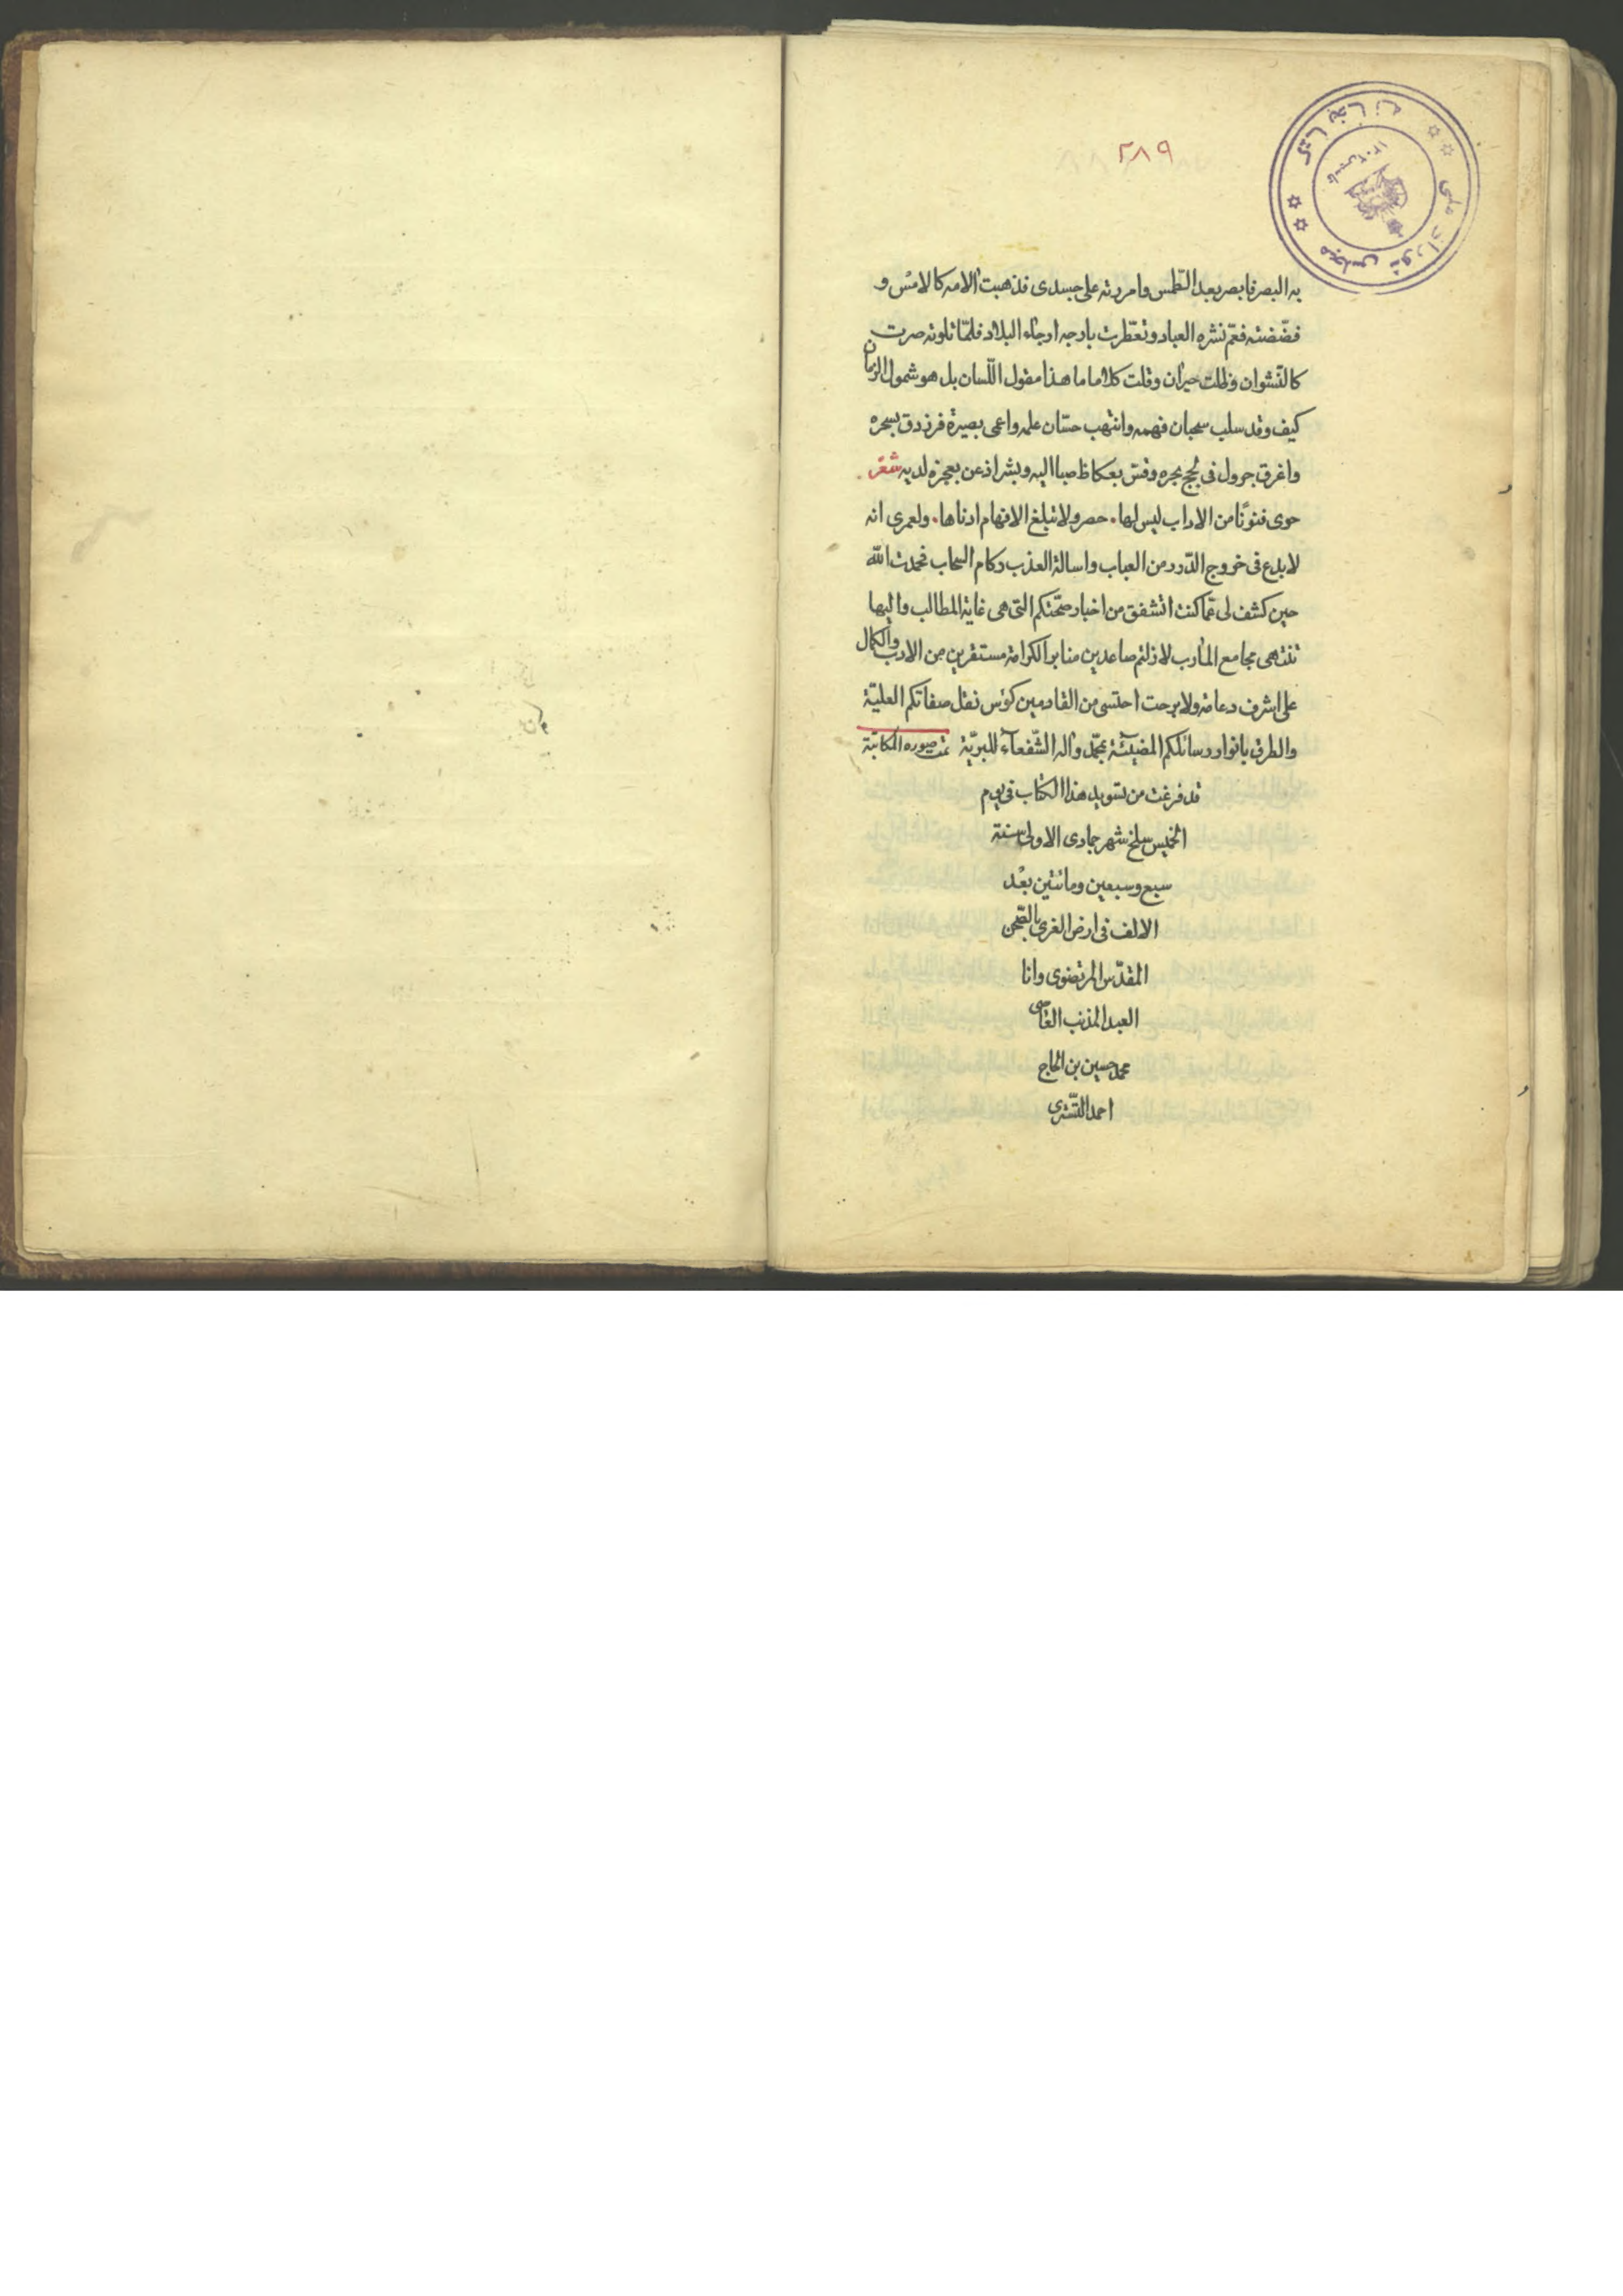 ٢٨٩
به البصر فابصر بعد الطمس وامررته على جسدى فذهبت آلامه كالامس و
فضضته فعمّ نشره العباد وتعطّرت بارجه ارجاء البلاد فلمّا تلوته صرت
كالنّشوان وظلت حيران وقلت كلاما ما هذا مقول اللّسان بل هو شمول الزمان
كيف وقد سلب سحبان فهمه وانتهب حسّان علمه واعمى بصيرة فرزدق بسحره
واغرق جرول فى لجج بحره وقس بعكاظ صبا اليه وبشر اذعن بعجزه لديه شعر
حوى فنونًا من الاداب ليس لها . حصر ولا تبلغ الافهام ادناها . ولعمرى انه
لا بدع فى خروج الدّرر من العباب واسالة العذب ركام السحاب فحمدت الله
حين كشف لى عمّا كنت اتشفق من اخبار صحّتكم التى هى غاية المطالب واليها
تنتهى مجامع المأرب لا زلتم صاعدين منابر الكرامة مستقرين من الادب والكمال
على اشرف دعامة ولا برحت احتسى من القادمين كؤس نقل صفاتكم العليّة
والطرق بانوار رسائلكم المضيئة بمحمّد وآله الشّفعآء للبريّة تمت صوره المكاتبة
قد فرغت من تسويد هذا الكتاب فى يوم
الخميس سلخ شهر جمادى الاولى سنة
سبع وسبعين ومائتين بعْد
الالف فى ارض الغرى بالصّحن
المقدّس المرتضوى وانا
العبد المذنب العاصى
محمد حسين بن الحاج
احمد التّسترى
كتابخانه مجلس شوراى ملى